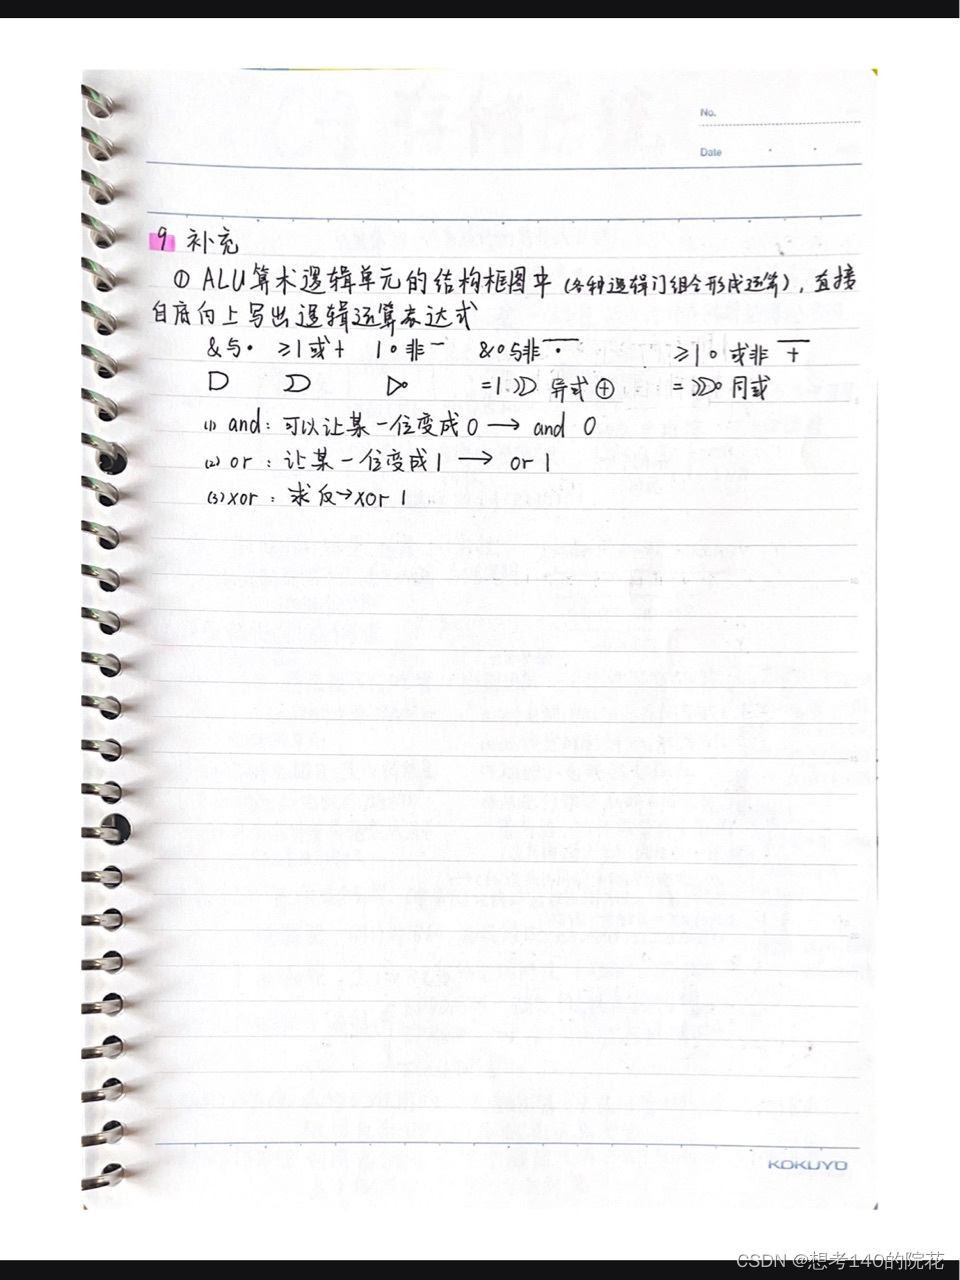 No.
Date
9 补充
① ALU算术逻辑单元的结构框图中（各种逻辑门组合形成运算），直接
自底向上写出逻辑运算表达式
&与· ≥1或+ 1o非‾ &o与非 ‾·‾ ≥1o或非 ‾+‾
=1 异或⊕ = 同或
(1) and：可以让某一位变成0 → and 0
(2) or：让某一位变成1 → or 1
(3) xor：求反→xor 1
KOKUYO
CSDN @想考140的院花